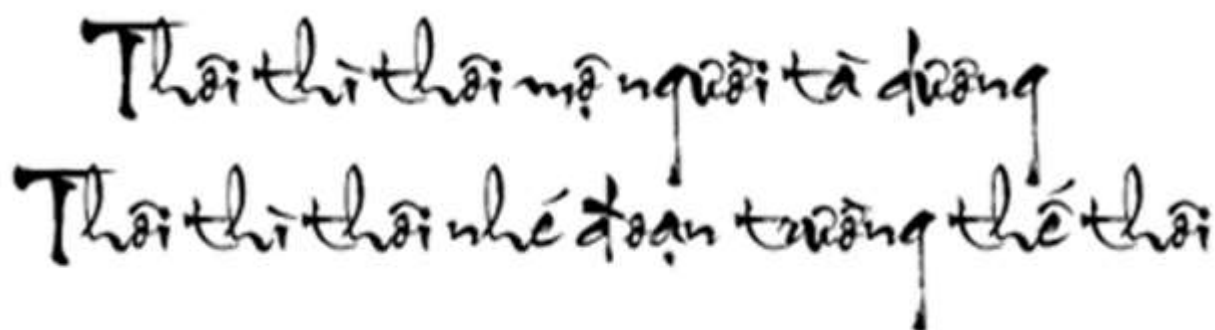 Thôi thì thôi mộ người tà dương
Thôi thì thôi nhé đoạn trường thế thôi